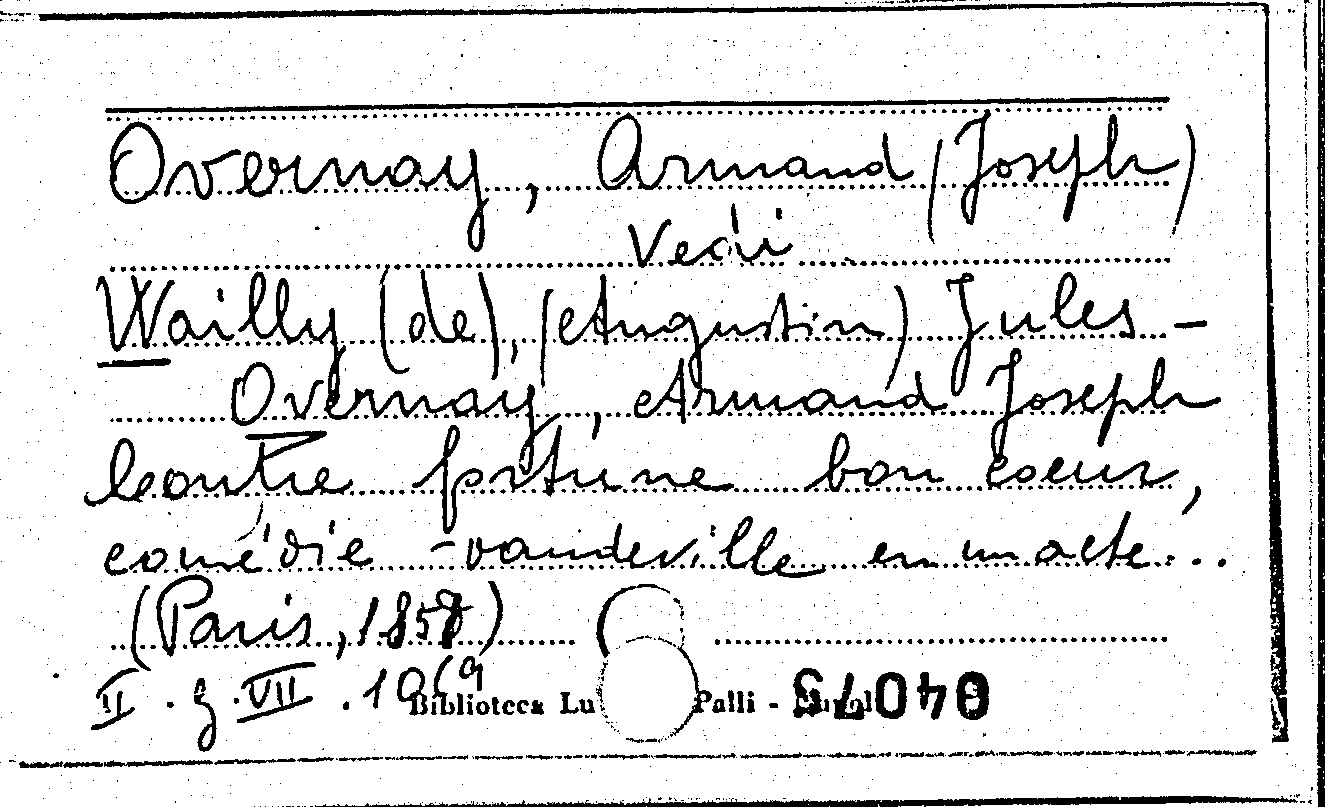 Overnay, Armand (Joseph)
Vedi
Wailly (de), (Augustin) Jules -
Overnay, Armand Joseph
Contre fortune bon coeur,
comédie-vaudeville en un acte...
(Paris,
II . g . VII . 10(9
Biblioteca Lu Palli -
04075